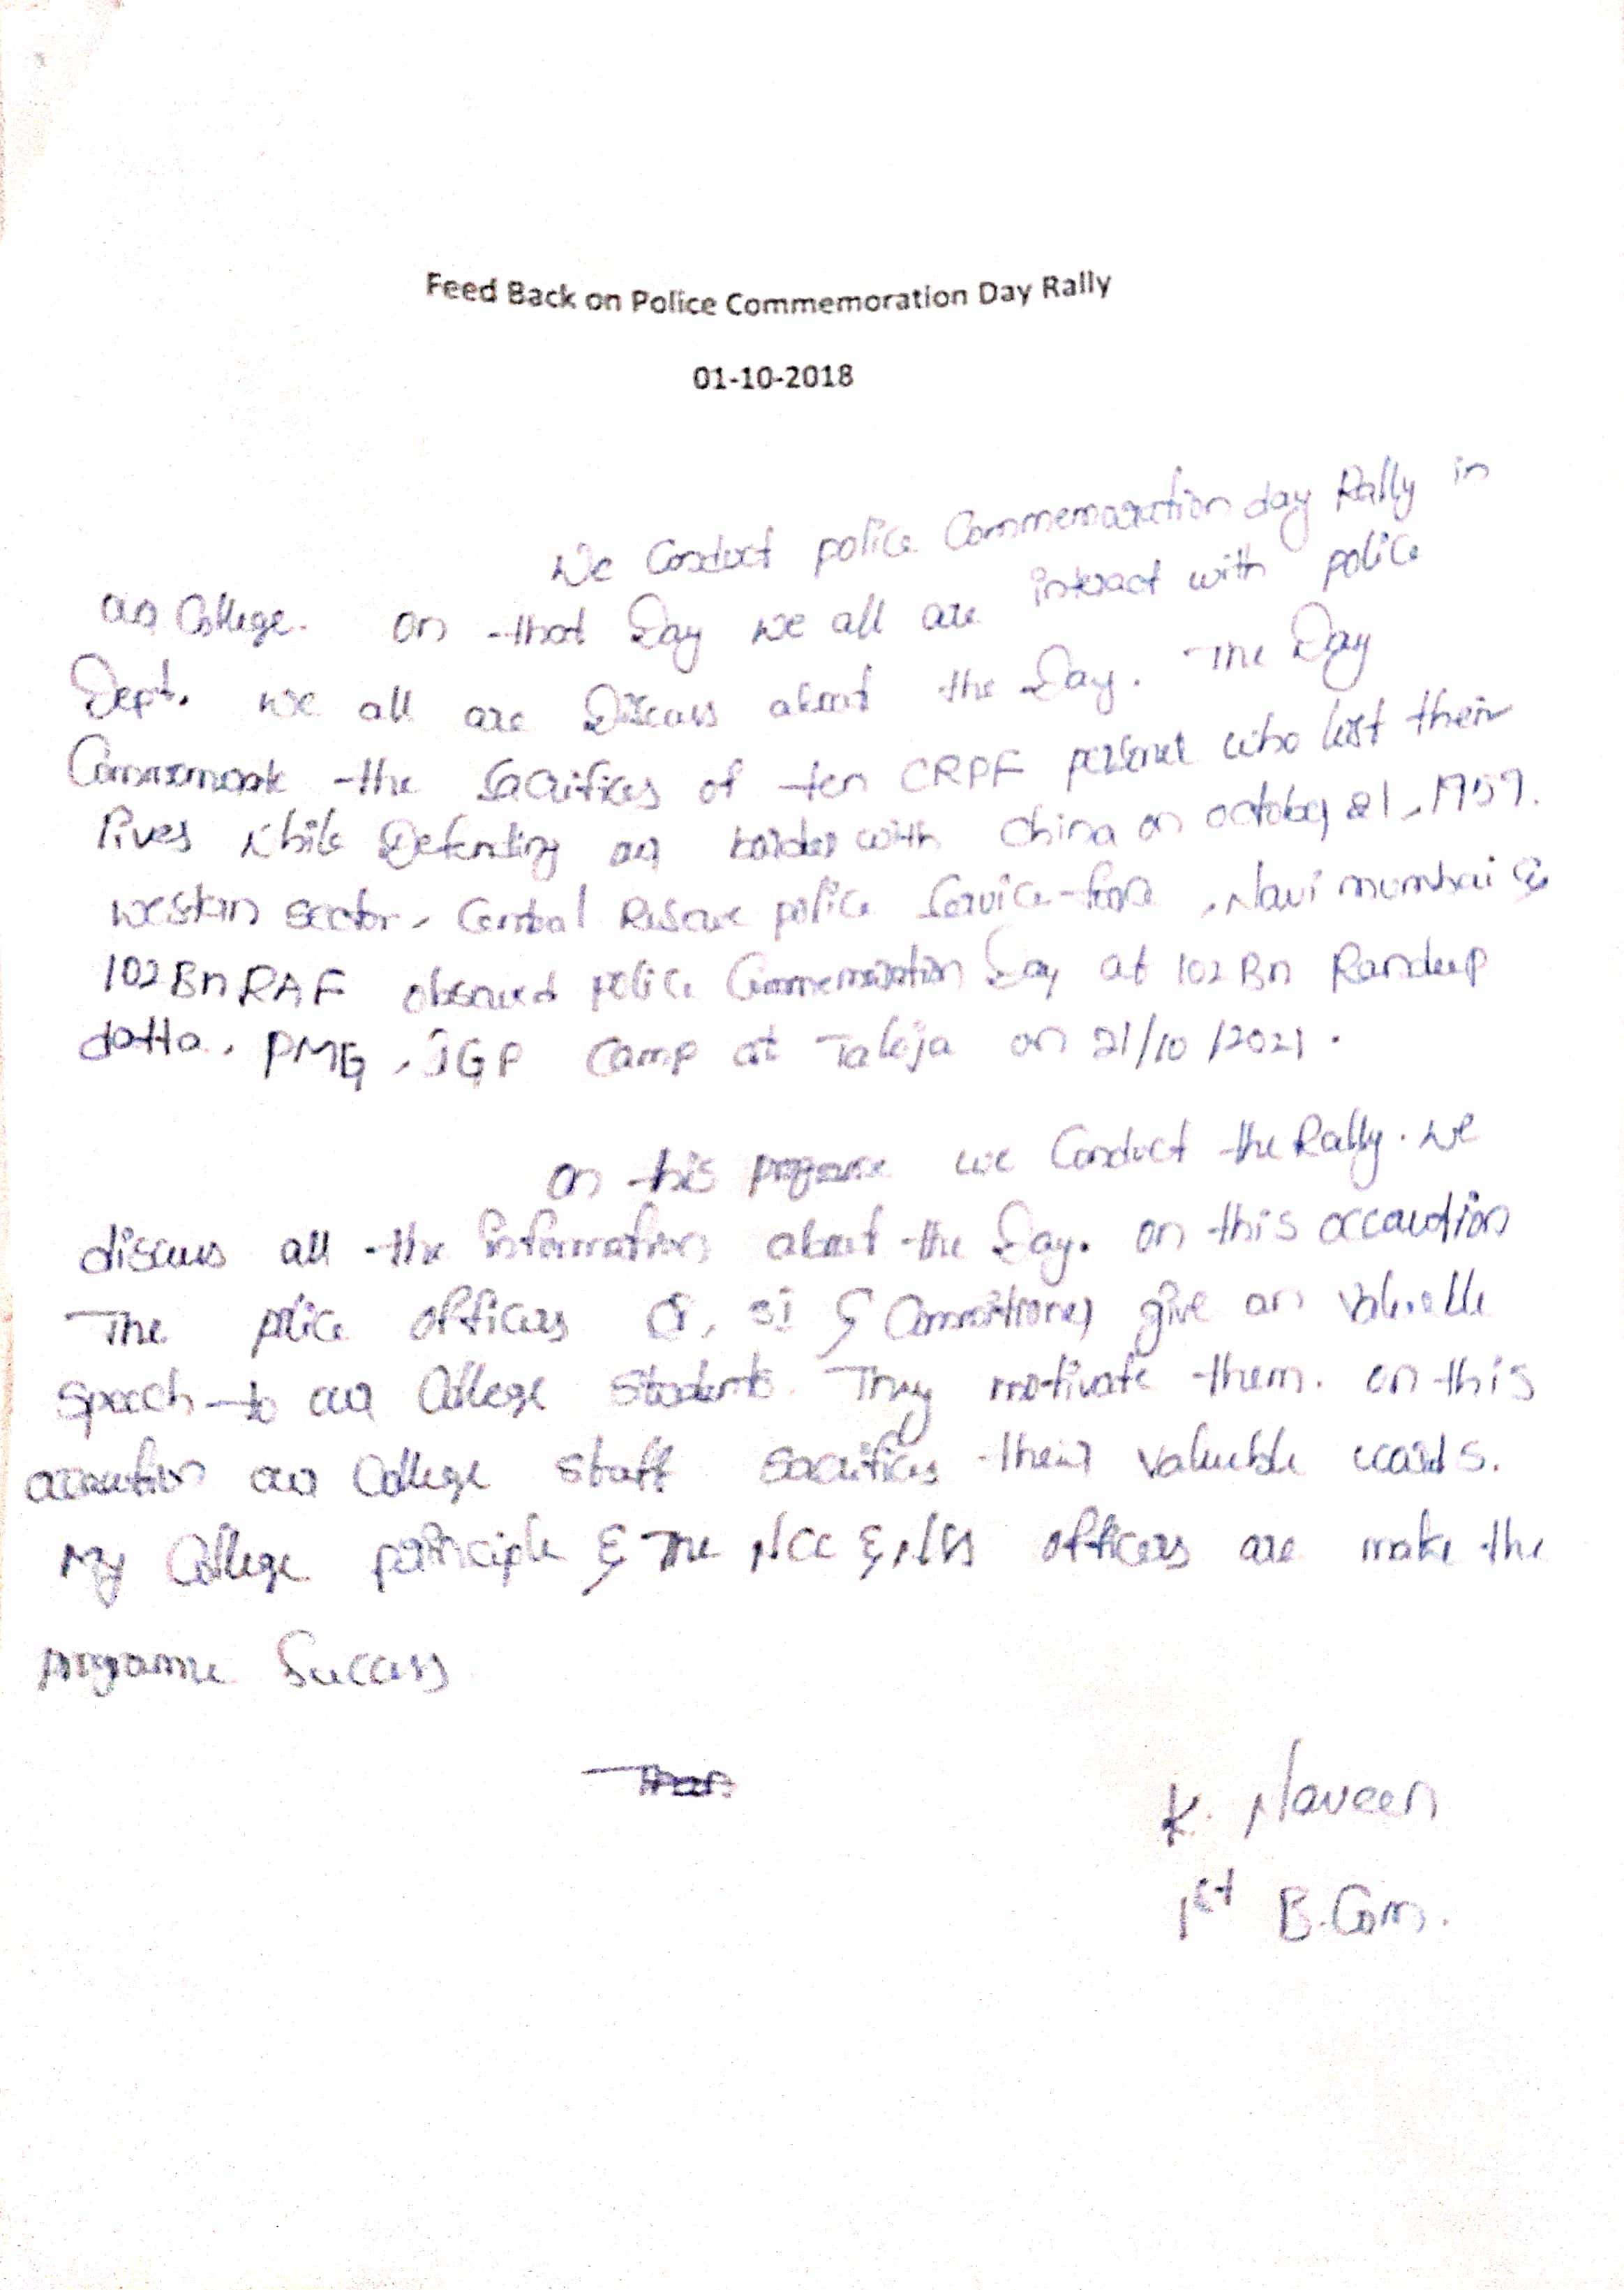 Feed Back on Police Commemoration Day Rally
01-10-2018
We Conduct police Commemoration day Rally in
our College. on that Day we all are interact with police
Dept. we all are Discuss about the Day. The Day
the sacrifices of ten CRPF who lost their
lives while Defending our border with China on october 21, 1959.
western sector, Central Reserve police Service force, Navi mumbai &
102 Bn RAF observed police Commemoration Day at 102 Bn Randeep
datta, PMG, IGP Camp at Taloja on 21/10/2021.
on this we Conduct the Rally. we
discuss all the information about the Day. on this
The police officers CI, SI & give an
speech to our College students. They motivate them. on this
our College staff sacrifices their words.
My College & The NCC & NSS officers are make the
Success
K. Naveen
1st B.Com.